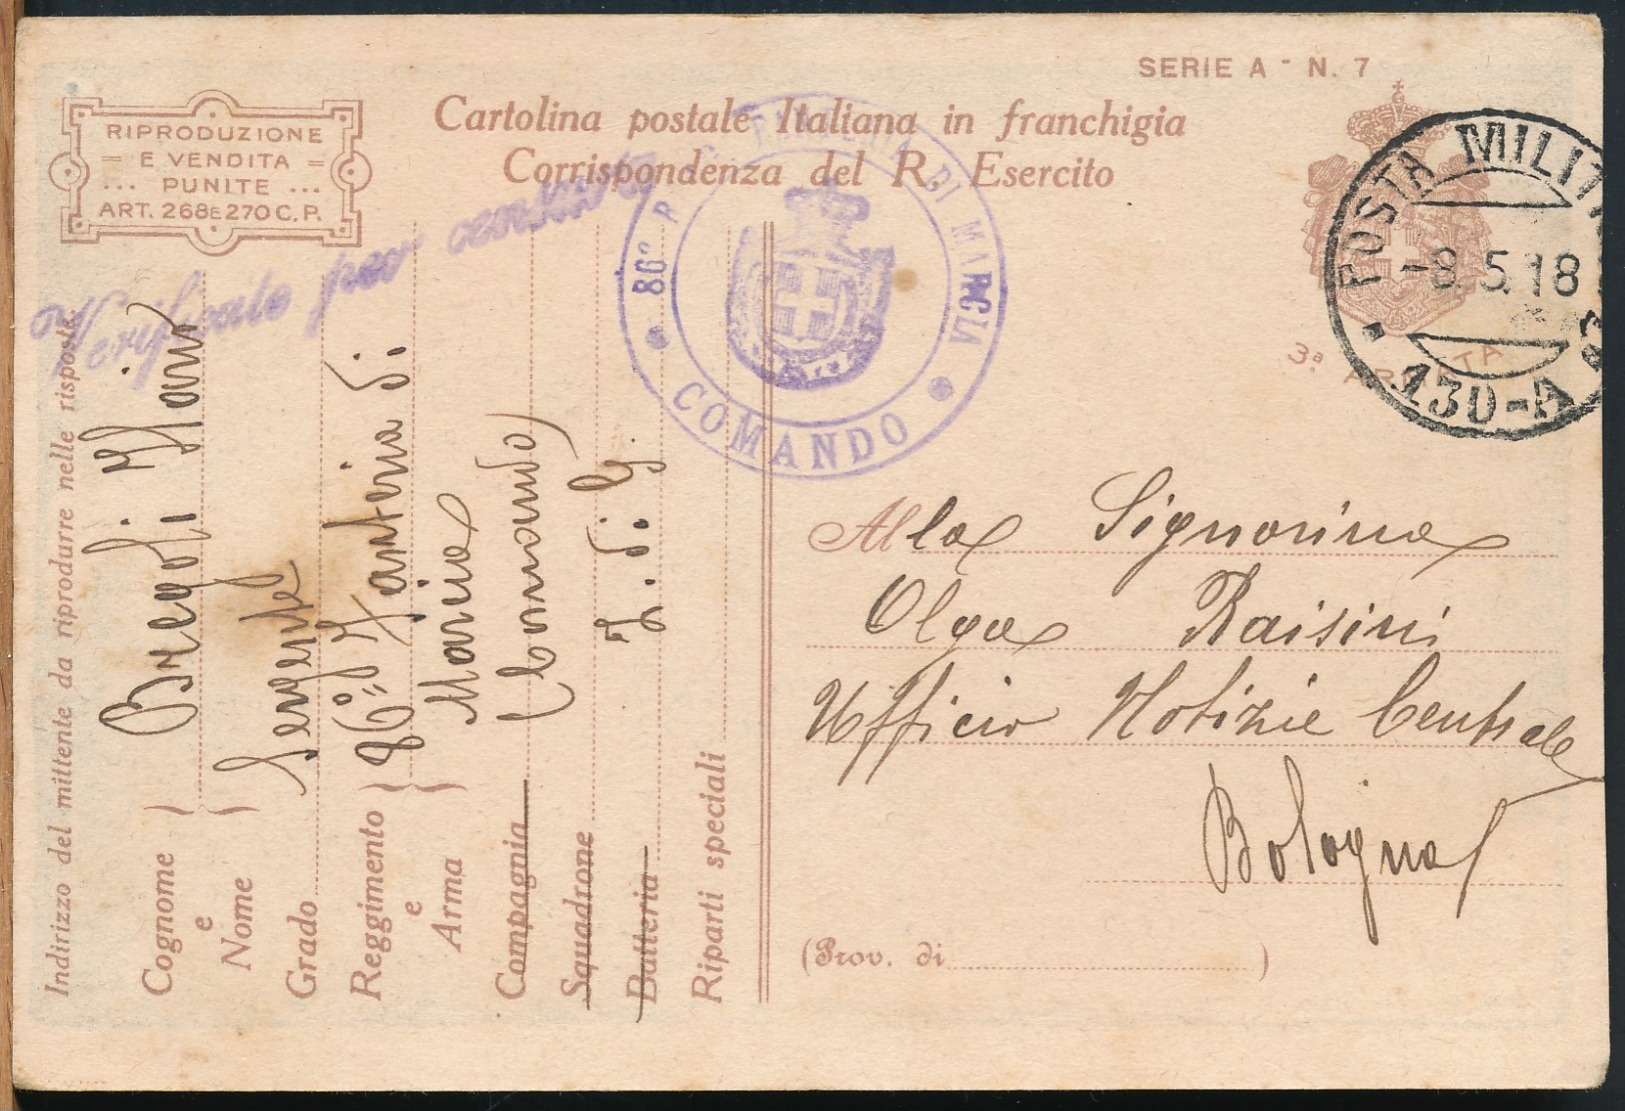 SERIE A - N. 7
RIPRODUZIONE
E VENDITA
... PUNITE ...
ART. 268 E 270 C. P.
Cartolina postale Italiana in franchigia
Corrispondenza del R. Esercito
Verificato per censura
86º R. FANTERIA DI MARCIA
COMANDO
POSTA MILITA
-8.5.18
130-A
3ª ARMATA
Indirizzo del mittente da riprodurre nelle risposte
Cognome e Nome
Grado Sergente
Reggimento e Arma 86º Fanteria di
Marcia
Compagnia (Comando)
Squadrone
Batteria Z. di G.
Riparti speciali
Alla Signorina
Olga Raisini
Ufficio Notizie Centrale
Bologna
(Prov. di )